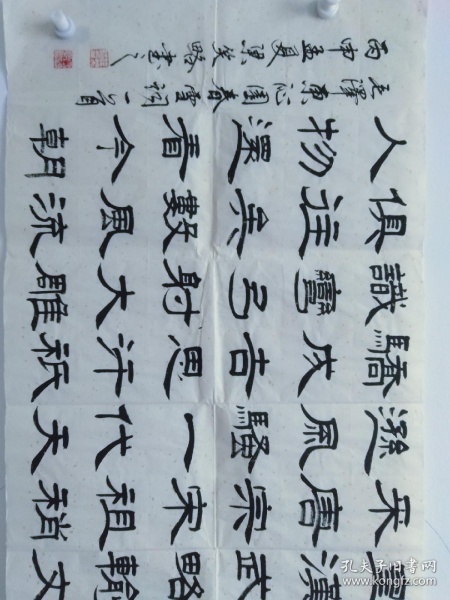 皇漢武略輸文
采唐宗宋祖稍
遜風騷一代天
驕成吉思汗祇
識彎弓射大雕
俱往矣數風流
人物還看今朝
毛澤東沁園春雪詞一首
丙申孟夏書之
孔夫子旧书网
www.kongfz.com